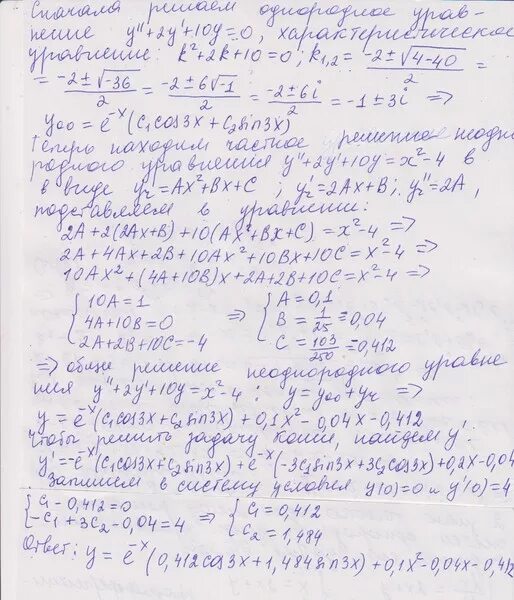 Сначала решаем однородное урав-
нение y''+2y'+10y=0, характеристическое
уравнение: k²+2k+10=0; k₁,₂ = (-2±√(4-40))/2 =
= (-2±√-36)/2 = (-2±6√-1)/2 = (-2±6i)/2 = -1±3i ⇒
y₀₀ = e^(-x)(C₁cos3x+C₂sin3x)
Теперь находим частное решение неодно
родного уравнения y''+2y'+10y=x²-4 в
в виде yч=Ax²+Bx+C; yч'=2Ax+B; yч''=2A,
подставляем в уравнение:
2A+2(2Ax+B)+10(Ax²+Bx+C)=x²-4 ⇒
2A+4Ax+2B+10Ax²+10Bx+10C=x²-4 ⇒
10Ax²+(4A+10B)x+2A+2B+10C=x²-4 ⇒
{ 10A=1 { A=0,1
{ 4A+10B=0 ⇒ { B=1/25=0,04
{ 2A+2B+10C=-4 { C=103/250=0,412
⇒ общее решение неоднородного уравне
ния y''+2y'+10y=x²-4: y=y₀₀+yч ⇒
y=e^(-x)(C₁cos3x+C₂sin3x)+0,1x²-0,04x-0,412
Чтобы решить задачу Коши, найдем y'.
y'=-e^(-x)(C₁cos3x+C₂sin3x)+e^(-x)(-3C₁sin3x+3C₂cos3x)+0,2x-0,04
Запишем в систему условия y(0)=0 и y'(0)=4
{ C₁-0,412=0 { C₁=0,412
{ -C₁+3C₂-0,04=4 ⇒ { C₂=1,484
Ответ: y=e^(-x)(0,412cos3x+1,484sin3x)+0,1x²-0,04x-0,412